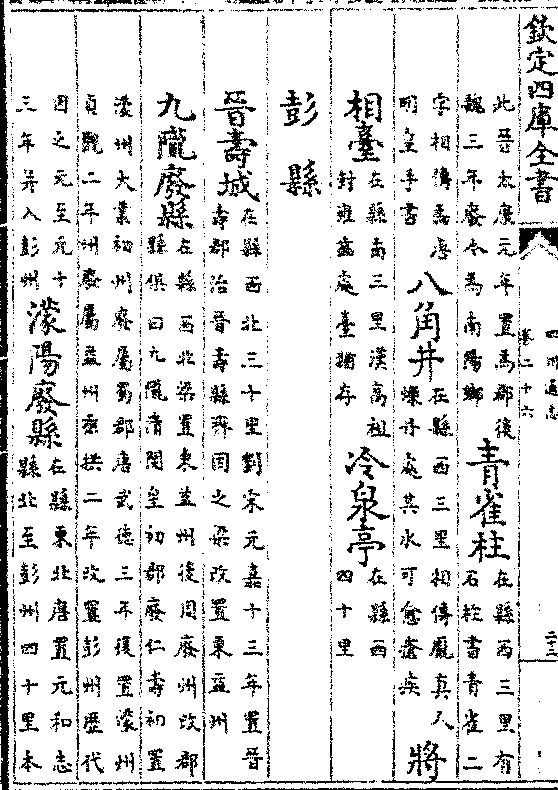 欽定四庫全書
四川通志
卷二十六
此晉太康元年置為郡後
魏三年廢今為南陽鄉
青雀柱
在縣西三里有
石柱書青雀二
字相傳為唐
明皇手書
八角井
在縣西三里相傳龎真人
爍丹處其水可愈瘡疾
將
相臺
在縣南三里漢高祖
封雍齒處臺猶存
冷泉亭
在縣西
四十里
彭縣
晉壽城
在縣西北三十里劉宋元嘉十三年置晉
壽郡治晉壽縣齊因之梁改置東益州
九隴廢縣
在縣西北梁置東益州後周廢州改郡
縣俱曰九隴隋開皇初郡廢仁壽初置
濛州大業初州廢屬蜀郡唐武德三年復置濛州
貞觀二年州廢屬益州垂拱二年改置彭州歷代
因之元至元十
三年并入彭州
濛陽廢縣
在縣東北唐置元和志
縣北至彭州四十里本